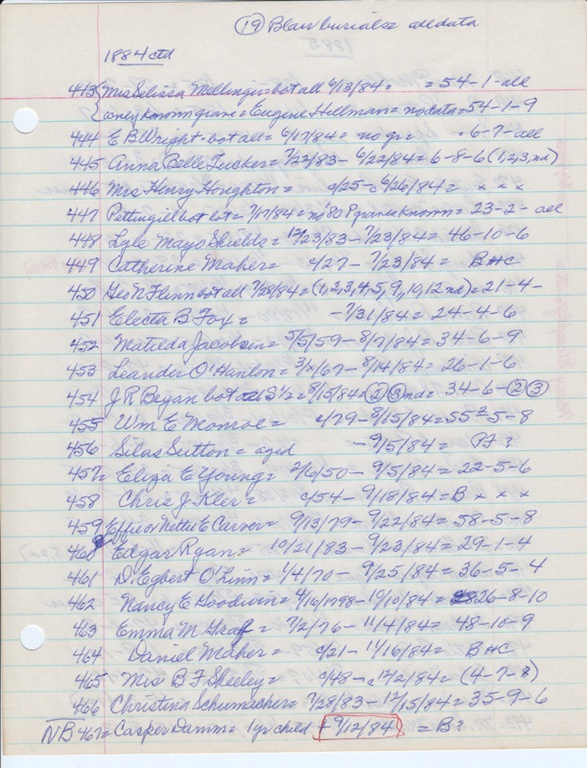 (19) Blair burials = all data
1884 ctd
443 { Mrs Selissa Mellinger = bot all 6/13/84 = = 54-1-all
only known grave = Eugene Hillman = no data = 54-1-9
444 E B Wright = bot all = 6/17/84 = no gr = 6-7-all
445 Anna Belle Tucker = 7/22/83 - 6/22/84 = 6-8-6 (1,2,3, nd)
446 Mrs Henry Houghton = c/25 - c 6/26/84 = x x x
447 Pettingill bot lot = 7/17/84 = no 80 P graves known = 23-2- all
448 Lyle Mayo Shields = 12/23/83 - 7/23/84 = 46-10-6
449 Catherine Maher = c/27 - 7/23/84 = B HC
450 Geo N Flinn bot all 7/28/84 = (1,2,3,4,5,9,10,12 nd) = 21-4-
451 Electa B Fox = - 7/31/84 = 24-4-6
452 Matilda Jacobsen = 5/5/59 - 8/7/84 = 34-6-9
453 Leander O'Hanlon = 3/x/67 - 8/14/84 = 26-1-6
454 J R Beyan bot S 1/2 = 8/15/84 = (2)(3) nd = 34-6-(2)(3)
455 Wm E Monroe = c/79 - 8/15/84 = 55²-5-8
456 Silas Sutton = aged - 9/5/84 = PF ?
457 = Eliza E Young = 2/6/50 - 9/5/84 = 22-5-6
458 Chris J Kler = c/54 - 9/18/84 = B x x x
459 Effie or Nettie E Carver = 9/13/79 - 9/22/84 = 58-5-8
460 Edgar Ryan = 10/21/83 - 9/23/84 = 29-1-4
461 D. Egbert O'Linn = 1/4/70 - 9/25/84 = 36-5-4
462 Nancy E Goodwin = 4/16/1798 - 10/10/84 = 26-8-10
463 Emma M Graff = 7/2/76 - 11/4/84 = 48-10-9
464 Daniel Maher = c/21 - 11/16/84 = B HC
465 Mrs B F Sheeley = c/48 - c 12/2/84 = (4-7-8)
466 Christina Schumacher = 7/28/83 - 12/15/84 = 35-9-6
NB 467 = Casper Damm = 1 yr child - 9/12/84 = B ?